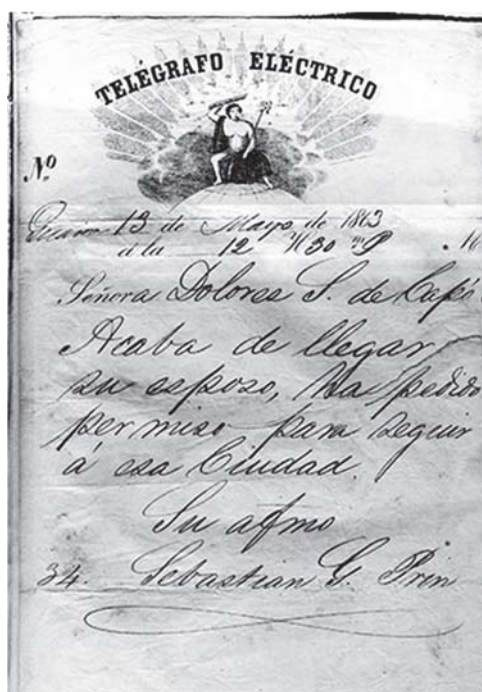 TELÉGRAFO ELÉCTRICO
Nº
13 de Mayo, de 1863
á la 12 H 30 m P M
Señora Dolores S. de Capó
Acaba de llegar
su esposo, ha pedido
permiso para seguir
á esa Ciudad.
Su afmo
34. Sebastian G. Prin